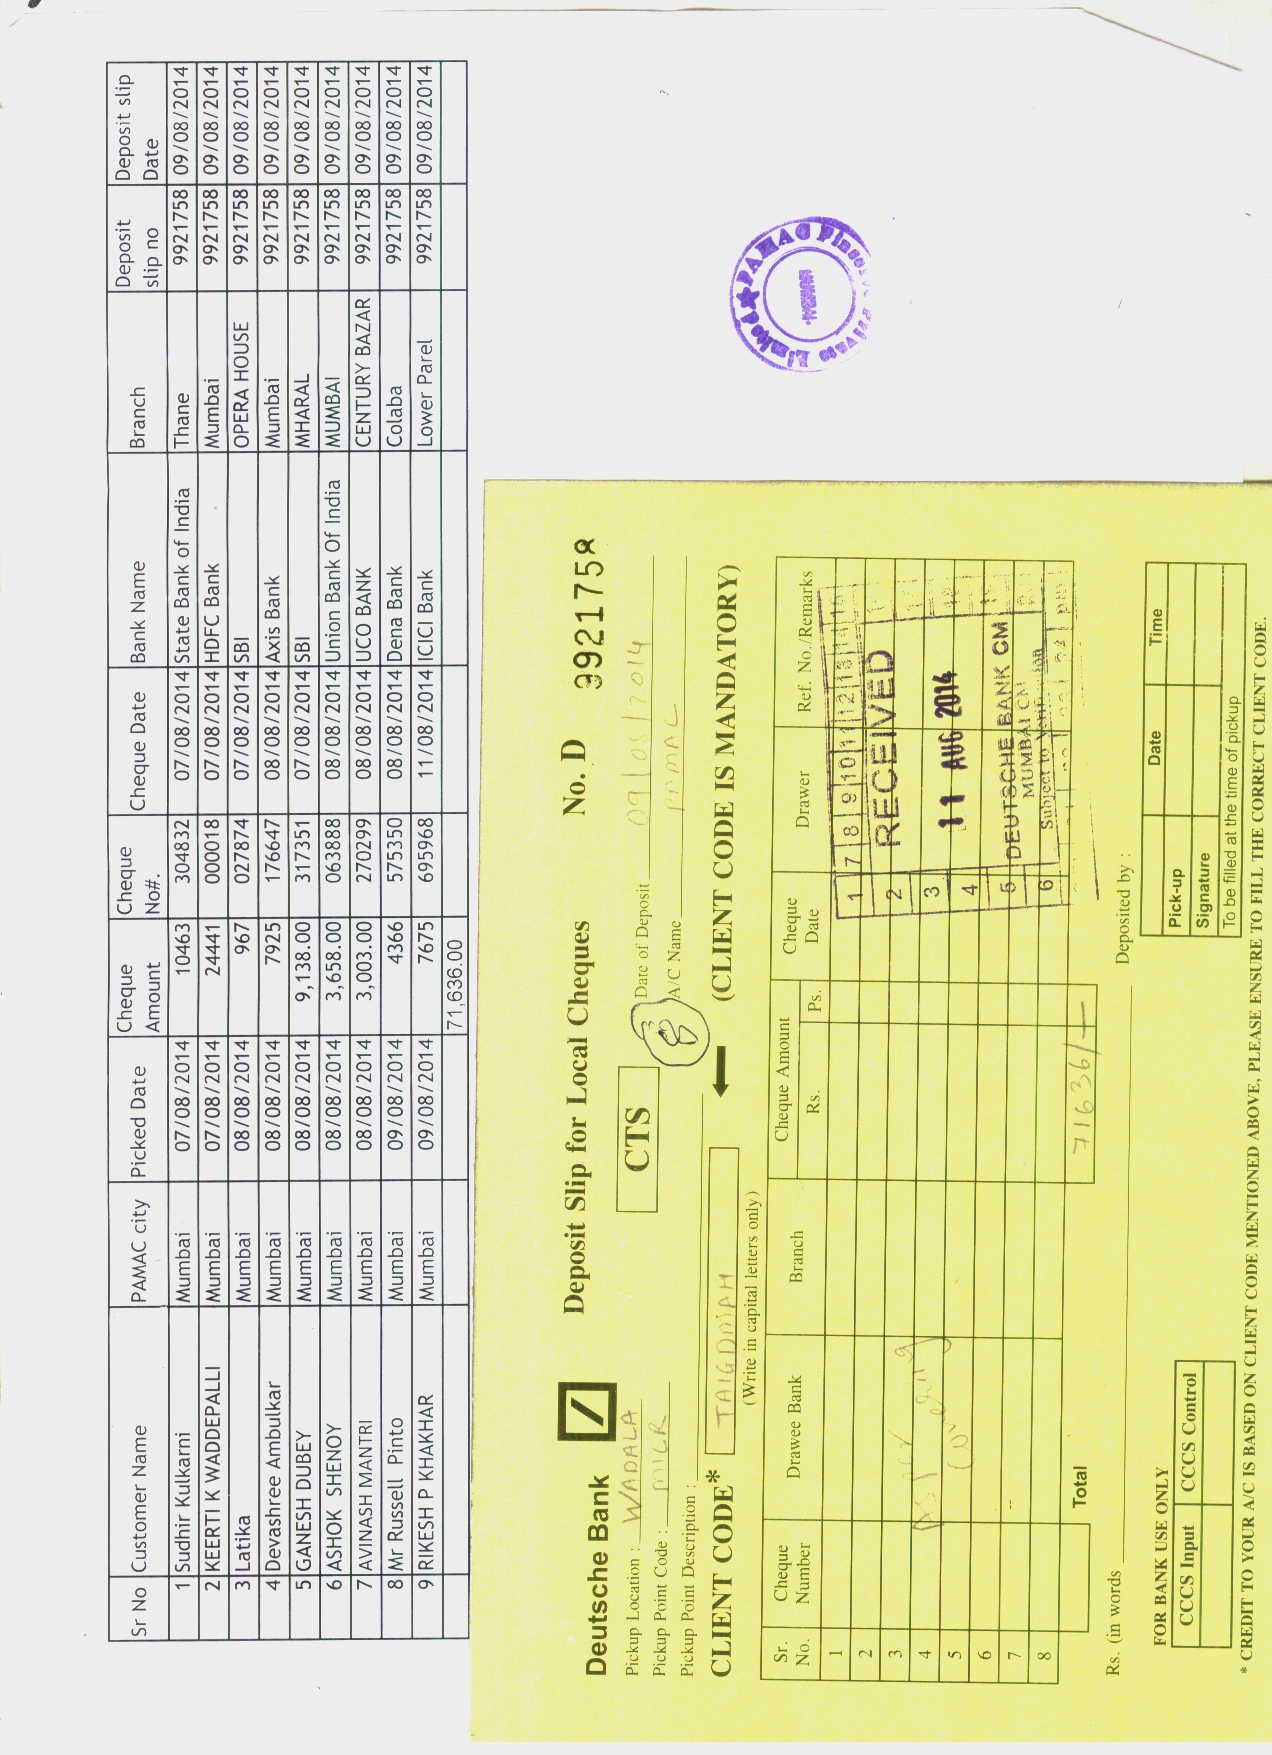 Sr No Customer Name PAMAC city Picked Date Cheque Amount Cheque No#. Cheque Date Bank Name Branch Deposit slip no Deposit slip Date
1 Sudhir Kulkarni Mumbai 07/08/2014 10463 304832 07/08/2014 State Bank of India Thane 9921758 09/08/2014
2 KEERTI K WADDEPALLI Mumbai 07/08/2014 24441 000018 07/08/2014 HDFC Bank Mumbai 9921758 09/08/2014
3 Latika Mumbai 08/08/2014 967 027874 07/08/2014 SBI OPERA HOUSE 9921758 09/08/2014
4 Devashree Ambulkar Mumbai 08/08/2014 7925 176647 08/08/2014 Axis Bank Mumbai 9921758 09/08/2014
5 GANESH DUBEY Mumbai 08/08/2014 9,138.00 317351 07/08/2014 SBI MHARAL 9921758 09/08/2014
6 ASHOK SHENOY Mumbai 08/08/2014 3,658.00 063888 08/08/2014 Union Bank Of India MUMBAI 9921758 09/08/2014
7 AVINASH MANTRI Mumbai 08/08/2014 3,003.00 270299 08/08/2014 UCO BANK CENTURY BAZAR 9921758 09/08/2014
8 Mr Russell Pinto Mumbai 09/08/2014 4366 575350 08/08/2014 Dena Bank Colaba 9921758 09/08/2014
9 RIKESH P KHAKHAR Mumbai 09/08/2014 7675 695968 11/08/2014 ICICI Bank Lower Parel 9921758 09/08/2014
71,636.00
PAMAC Private Limited
MUMBAI
Deutsche Bank Deposit Slip for Local Cheques No. D 9921758
Pickup Location : WADALA CTS 8 Date of Deposit 09/08/2014
Pickup Point Code : MICR A/C Name PAMAC
Pickup Point Description :
CLIENT CODE* TAIGDMAH (CLIENT CODE IS MANDATORY)
(Write in capital letters only)
Sr. No. Cheque Number Drawee Bank Branch Cheque Amount Rs. Ps. Cheque Date Drawer Ref. No./Remarks
1
2
3
4
5
6
7
8
As per
1 7 8 9 10 11 12 13 14 15
2 RECEIVED
3
4 11 AUG 2014
5 DEUTSCHE BANK CM
MUMBAI CM
6 Subject to
Total 71636/-
Rs. (in words Deposited by :
FOR BANK USE ONLY
CCCS Input CCCS Control
Pick-up Date Time
Signature
To be filled at the time of pickup
* CREDIT TO YOUR A/C IS BASED ON CLIENT CODE MENTIONED ABOVE, PLEASE ENSURE TO FILL THE CORRECT CLIENT CODE.